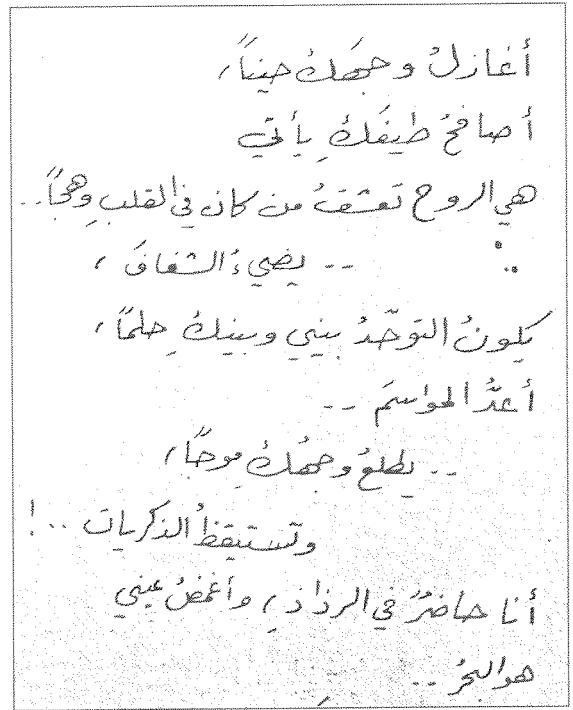 أغازلُ وجهَكِ حيناً،
أصافحُ طيفَكِ يأتي
هي الروح تعشقُ من كان في القلبِ وهجاً..
.. يضيءُ الشغافَ،
يكونُ التوحّدُ بيني وبينكِ حلماً،
أعدُّ المواسمَ ..
.. يطلعُ وجهُكِ موجاً،
وتستيقظُ الذكريات ..!
أنا حاضرٌ في الرذاذِ، وأغمضُ عيني
هو البحرُ ..